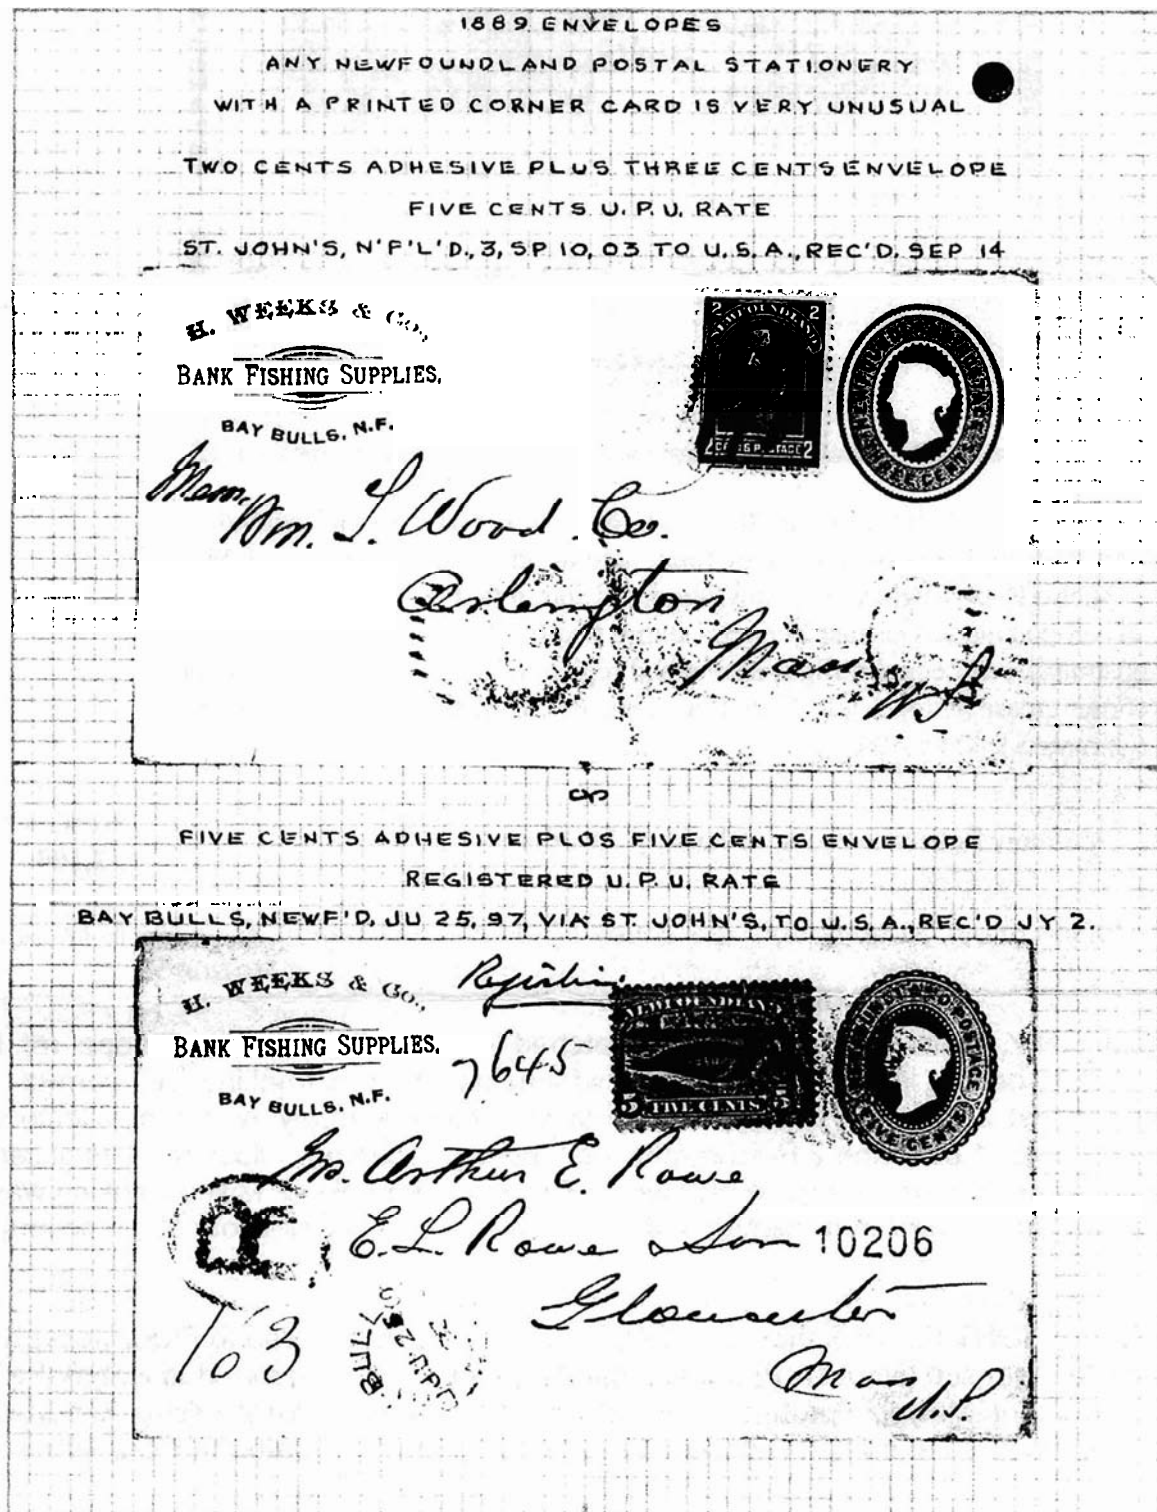 1889 ENVELOPES
ANY NEWFOUNDLAND POSTAL STATIONERY
WITH A PRINTED CORNER CARD IS VERY UNUSUAL
TWO CENTS ADHESIVE PLUS THREE CENTS ENVELOPE
FIVE CENTS U.P.U. RATE
ST. JOHN'S, N'F'L'D., 3, SP 10, 03 TO U.S.A., REC'D. SEP 14
H. WEEKS & Co.,
BANK FISHING SUPPLIES,
BAY BULLS, N.F.
2 2
NEWFOUNDLAND
2 CENTS POSTAGE 2
Wm. L. Wood Co.
Arlington
Mass.
U.S.
FIVE CENTS ADHESIVE PLUS FIVE CENTS ENVELOPE
REGISTERED U.P.U. RATE
BAY BULLS, NEWF'D, JU 25, 97, VIA ST. JOHN'S, TO U.S.A., REC'D JY 2.
H. WEEKS & Co.,
BANK FISHING SUPPLIES,
BAY BULLS, N.F.
7645
NEWFOUNDLAND
5 FIVE CENTS 5
NEWFOUNDLAND POSTAGE
FIVE CENTS
Arthur E. Rowe
E. L. Rowe & Son 10206
Gloucester
Mass
U.S.
R
163
BULLS